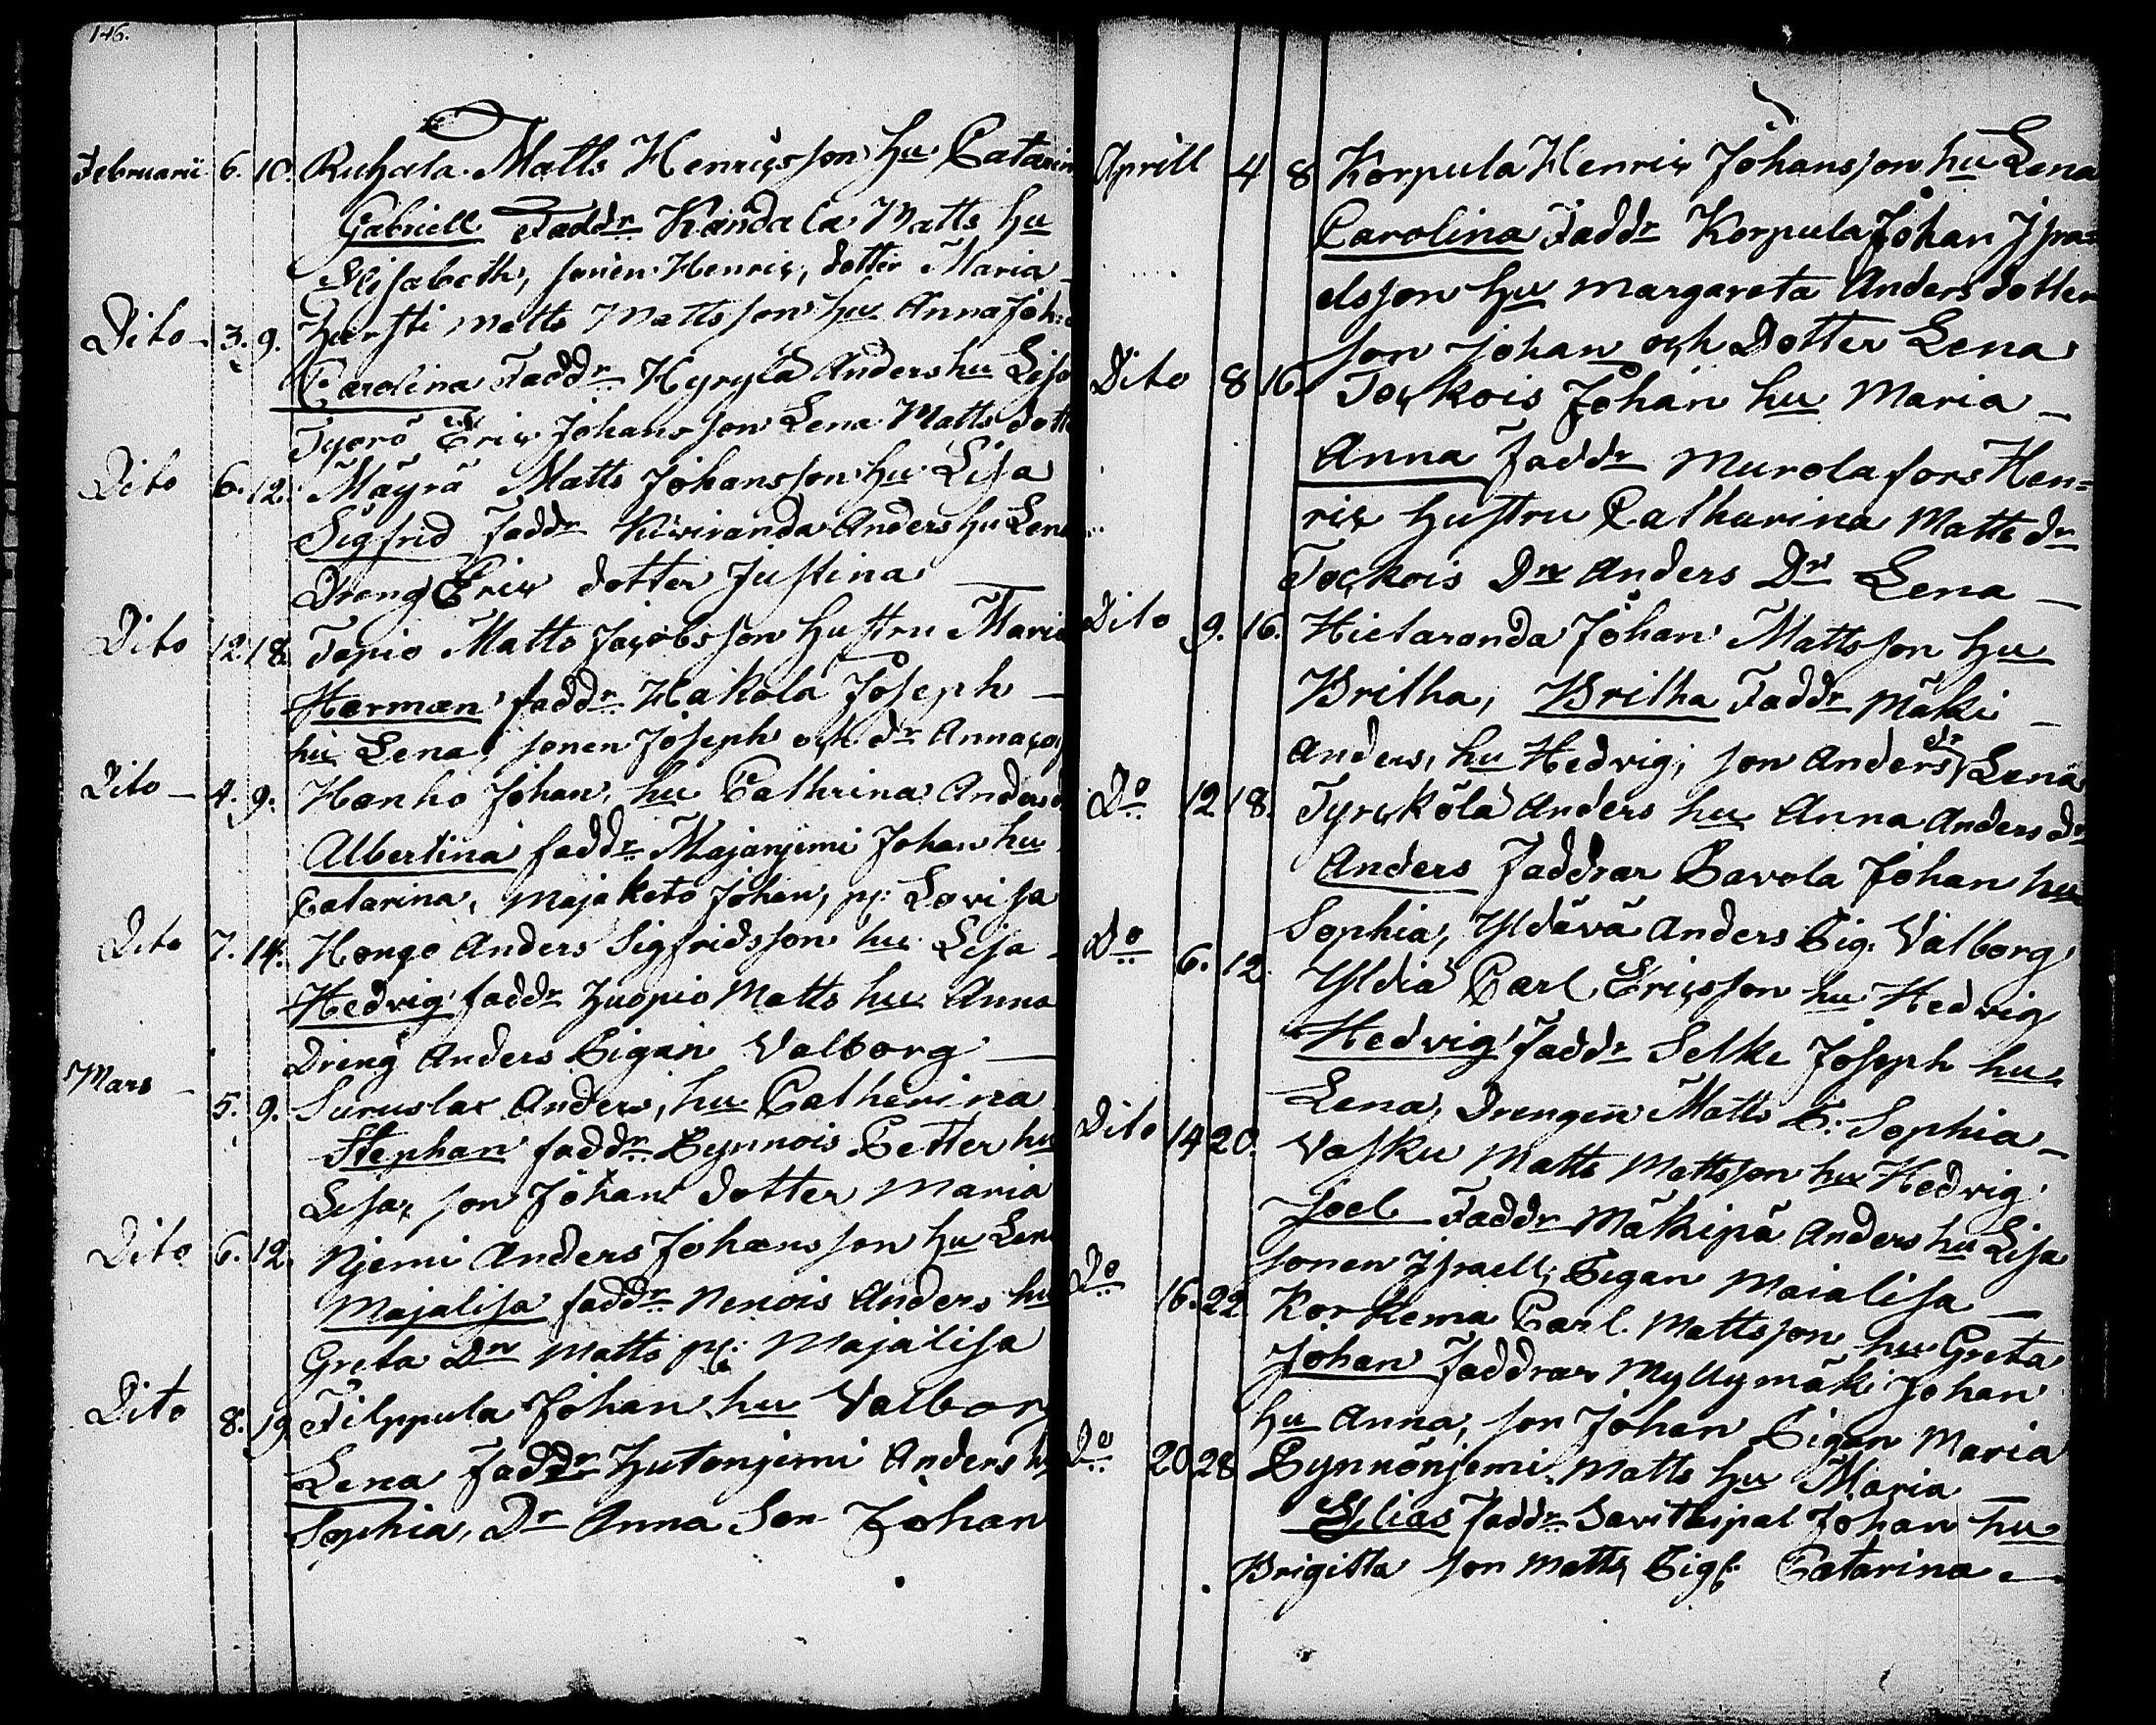 146.
Februarii 6. 10. Ruhala Matts Henricsson hu Catarin
Gabriell Faddr Kandala Matts hu
Elisabeth, sonen Henric, dotter Maria
Dito 3. 9. Hursti Matts Mattsson hu Anna Joh
Carolina Faddr Hyrylä Anders hu Lisa
Työrö Eric Johansson Lena Matts dott
Dito 6. 12. Mäyrä Matts Johansson hu Lisa
Sigfrid Faddr Kiviranda Anders hu Lena
Dreng Eric dotter Justina
Dito 12. 18. Tapio Matts Jacobsson hustru Maria
Herman faddr Hakola Joseph
hu Lena, sonen Joseph och dr Anna
Dito 4. 9. Hanho Johan, hu Cathrina Anders
Albertina faddr Majanjemi Johan hu
Catarina, Majaketo Johan, p: Lovisa
Dito 7. 14. Hongo Anders Sigfridsson hu Lisa
Hedvig faddr Huopio Matts hu Anna
Dreng Anders Pigan Valborg
Mars 5. 9. Suruslax Anders, hu Catherina
Stephan faddr Pynnois Petter hu
Lisa, son Johan dotter Maria
Dito 6. 12. Njemi Anders Johansson hu Len
Majalisa faddr Nenois Anders hu
Greta Dr Matts p: Majalisa
Dito 8. 19. Filppula Johan hu Valborg
Lena Faddr Hutonjemi Anders hu
Sophia, Dr Anna Son Johan
Aprill 4 8 Korpula Henric Johansson hu Lena
Carolina Faddr Korpula Johan Jsra=
elsson hu Margareta Anders dotter
son Johan och Dotter Lena
Dito 8 16. Tockois Johan hu Maria
Anna Faddr Murolafors Hen=
ric hustru Catharina Matts dr
Tockois Dr Anders Dr Lena
Dito 9. 16. Hietaranda Johan Mattsson hu
Britha, Britha Faddr Mäki
Anders, hu Hedvig, son Anders dr Lena
Do 12 18. Tyrckölä Anders hu Anna Anders dr
Anders Faddrar Pavola Johan hu
Sophia, Yldävä Anders Pig. Valborg
Do 6. 12. Yldiä Carl Ericsson hu Hedvig
Hedvig Faddr Selke Joseph hu
Lena, Drengen Matts P: Sophia
Dito 14 20. Vasku Matts Mattsson hu Hedvig
Joel Faddr Mäkipä Anders hu Lisa
sonen Jsraell, Pigan Maialisa
Do 16. 22 Korkema Carl Mattsson hu Greta
Johan Faddrar Myllymäki Johan
hu Anna, son Johan Pigan Maria
Do 20 28 Pynnönjemi Matts hu Maria
Elias Faddr Savitaipal Johan hu
Brigitta son Matts Pig: Catarina